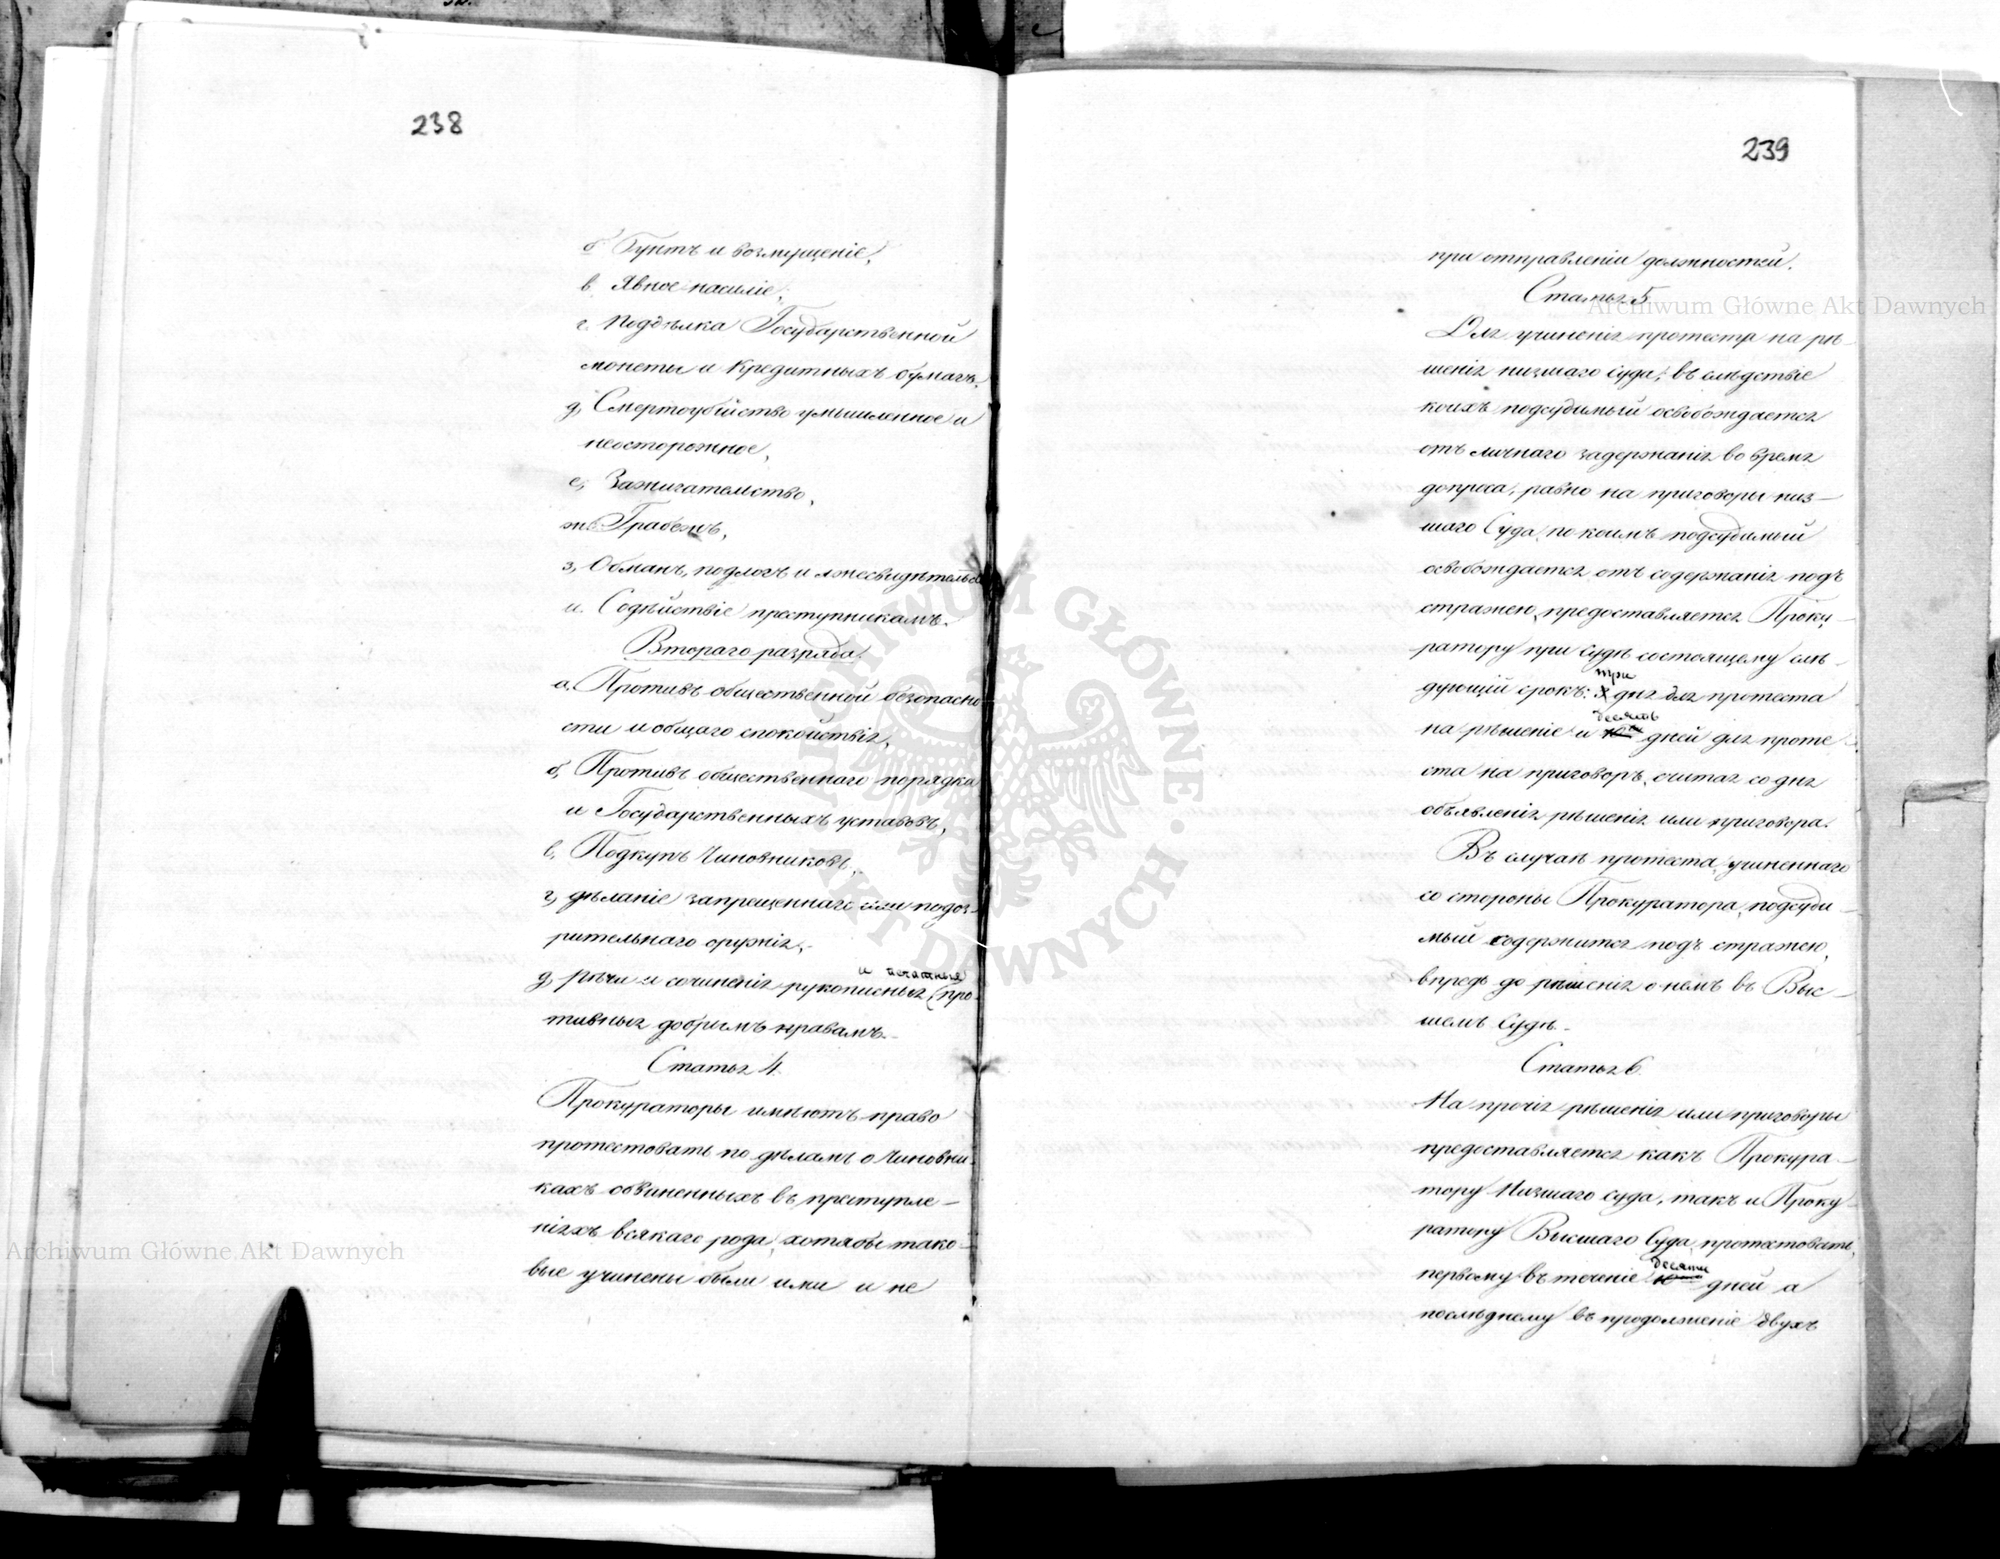 238
б Бунтъ и возмущеніе,
в. Явное насиліе,
г. Поддѣлка Государственной
монеты и кредитныхъ бумагъ,
д, Смертоубійство умышленное и
неосторожное,
е, Зажигательство,
ж. Грабежъ,
з, Обманъ, подлогъ и лжесвидѣтельс
и. Содѣйствіе преступникамъ.
Втораго разряда.
а. Противъ общественной безопасно
сти и общаго спокойствія,
б, Противъ общественнаго порядка
и Государственныхъ уставовъ,
в, Подкупъ Чиновниковъ,
г, дѣланіе запрещеннаго или подоз-
рительнаго оружія,
и печатныя
д, рѣчи и сочиненія рукописныя (про-
тивныя добрымъ нравамъ.
Статья 4.
Прокураторы имѣютъ право
протестовать по дѣламъ о Чиновни-
кахъ обвиненныхъ въ преступле-
ніяхъ всякаго рода, хотябы тако-
вые учинены были ими и не
239
при отправленіи должностей.
Статья 5
Для учиненія протеста на рѣ-
шенія низшаго Суда, въ слѣдствіе
коихъ подсудимый освобождается
отъ личнаго задержанія во время
допроса, равно на приговоры низ-
шаго Суда, по коимъ подсудимый
освобождается отъ содержанія подъ
стражею, предоставляется Проку-
ратору при Судѣ состоящему слѣ-
три
дующій срокъ: дня для протеста
десять
на рѣшеніе и дней для проте-
ста на приговоръ, считая со дня
объявленія рѣшенія или приговора.
Въ случаѣ протеста, учиненнаго
со стороны Прокуратора, подсуди-
мый содержится подъ стражею,
впредь до рѣшенія о немъ въ Выс-
шемъ Судѣ.
Статья 6.
На прочія рѣшенія или приговоры
предоставляется какъ Прокура-
тору Низшаго суда, такъ и Проку
ратору Высшаго Суда, протестовать,
десяти
первому въ теченіе дней а
послѣднему въ продолженіе двухъ
Archiwum Główne Akt Dawnych
Archiwum Główne Akt Dawnych
ARCHIWUM GŁÓWNE AKT DAWNYCH